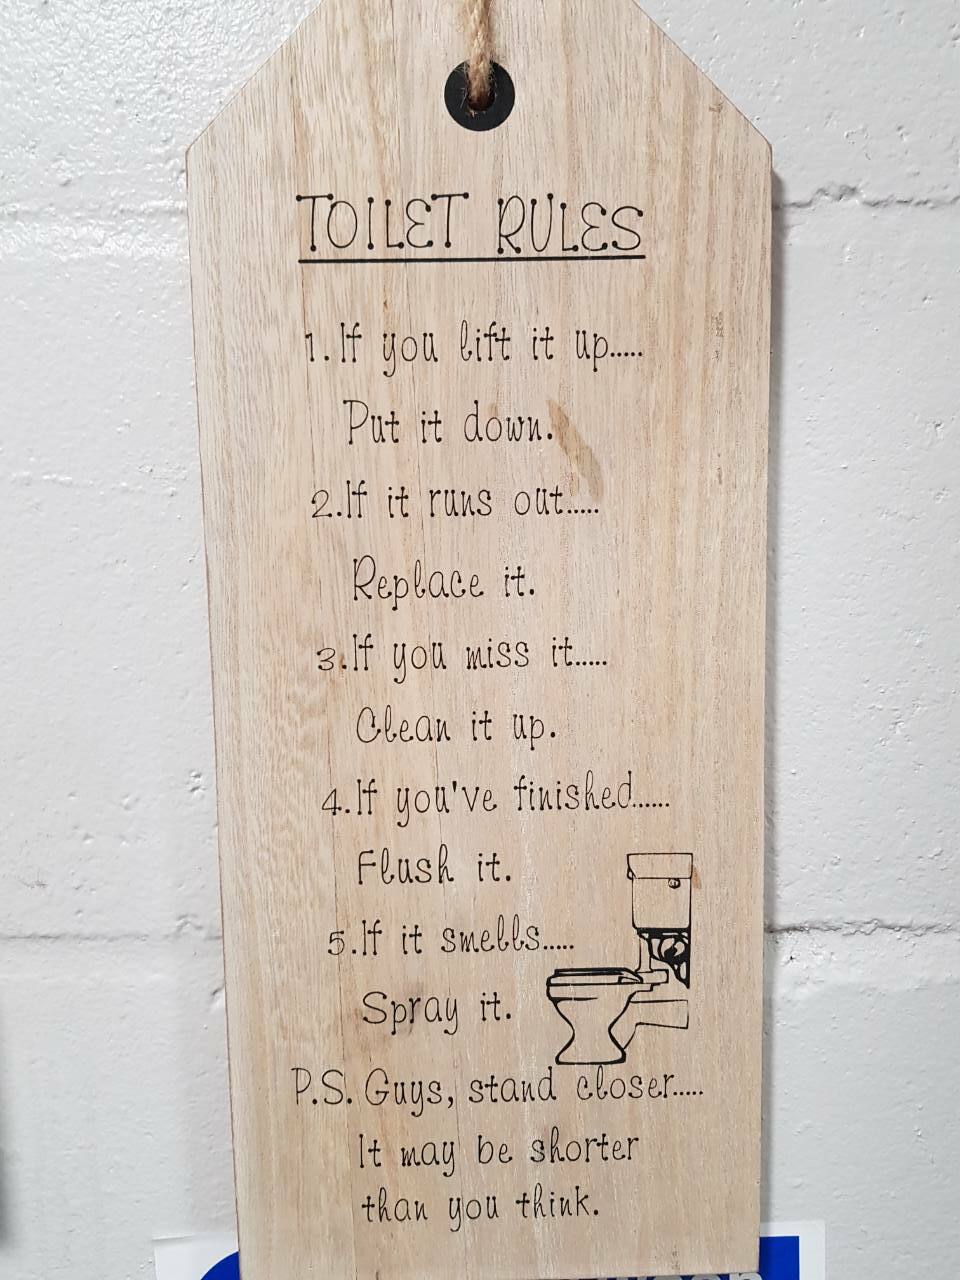 TOILET RULES
1. If you lift it up.....
Put it down.
2. If it runs out.....
Replace it.
3. If you miss it.....
Clean it up.
4. If you've finished......
Flush it.
5. If it smells.....
Spray it.
P.S. Guys, stand closer.....
It may be shorter
than you think.